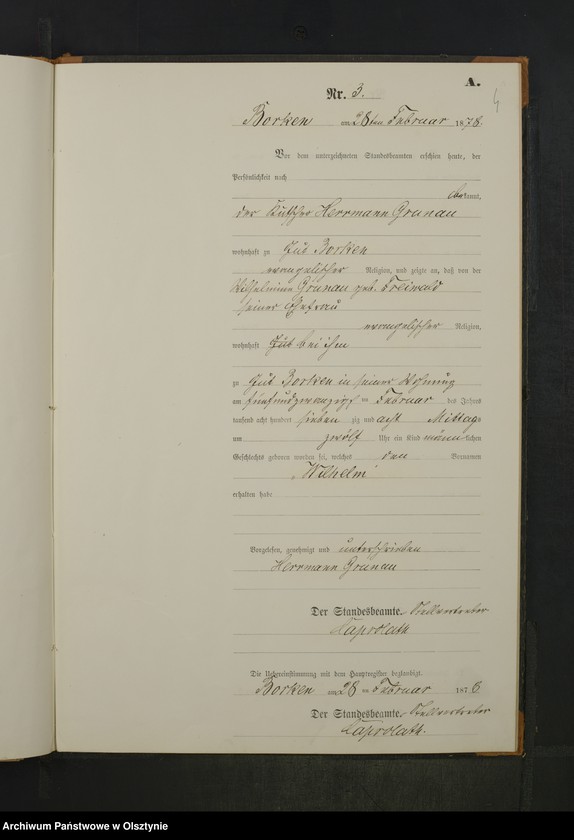 A.
4
Nr. 3.
Borken am 28ten Februar 1878
Vor dem unterzeichneten Standesbeamten erschien heute, der
Persönlichkeit nach
bekannt,
der Kutscher Herrmann Grunau
wohnhaft zu Gut Borken
evangelischer Religion, und zeigte an, daß von der
Wilhelmine Grunau geb. Freiwald
seiner Ehefrau
evangelischer Religion,
wohnhaft Gut bei ihm
zu Gut Borken in seiner Wohnung
am fünfundzwanzigsten Februar des Jahres
tausend acht hundert sieben zig und acht Mittags
um zwölf Uhr ein Kind männlichen
Geschlechts geboren worden sei, welches den Vornamen
„Wilhelm“
erhalten habe
Vorgelesen, genehmigt und unterschrieben
Herrmann Grunau
Der Standesbeamte. Stellvertreter
Kaprolath
Die Uebereinstimmung mit dem Hauptregister beglaubigt.
Borken am 28 ten Februar 1878
Der Standesbeamte. Stellvertreter
Kaprolath.
Archiwum Państwowe w Olsztynie